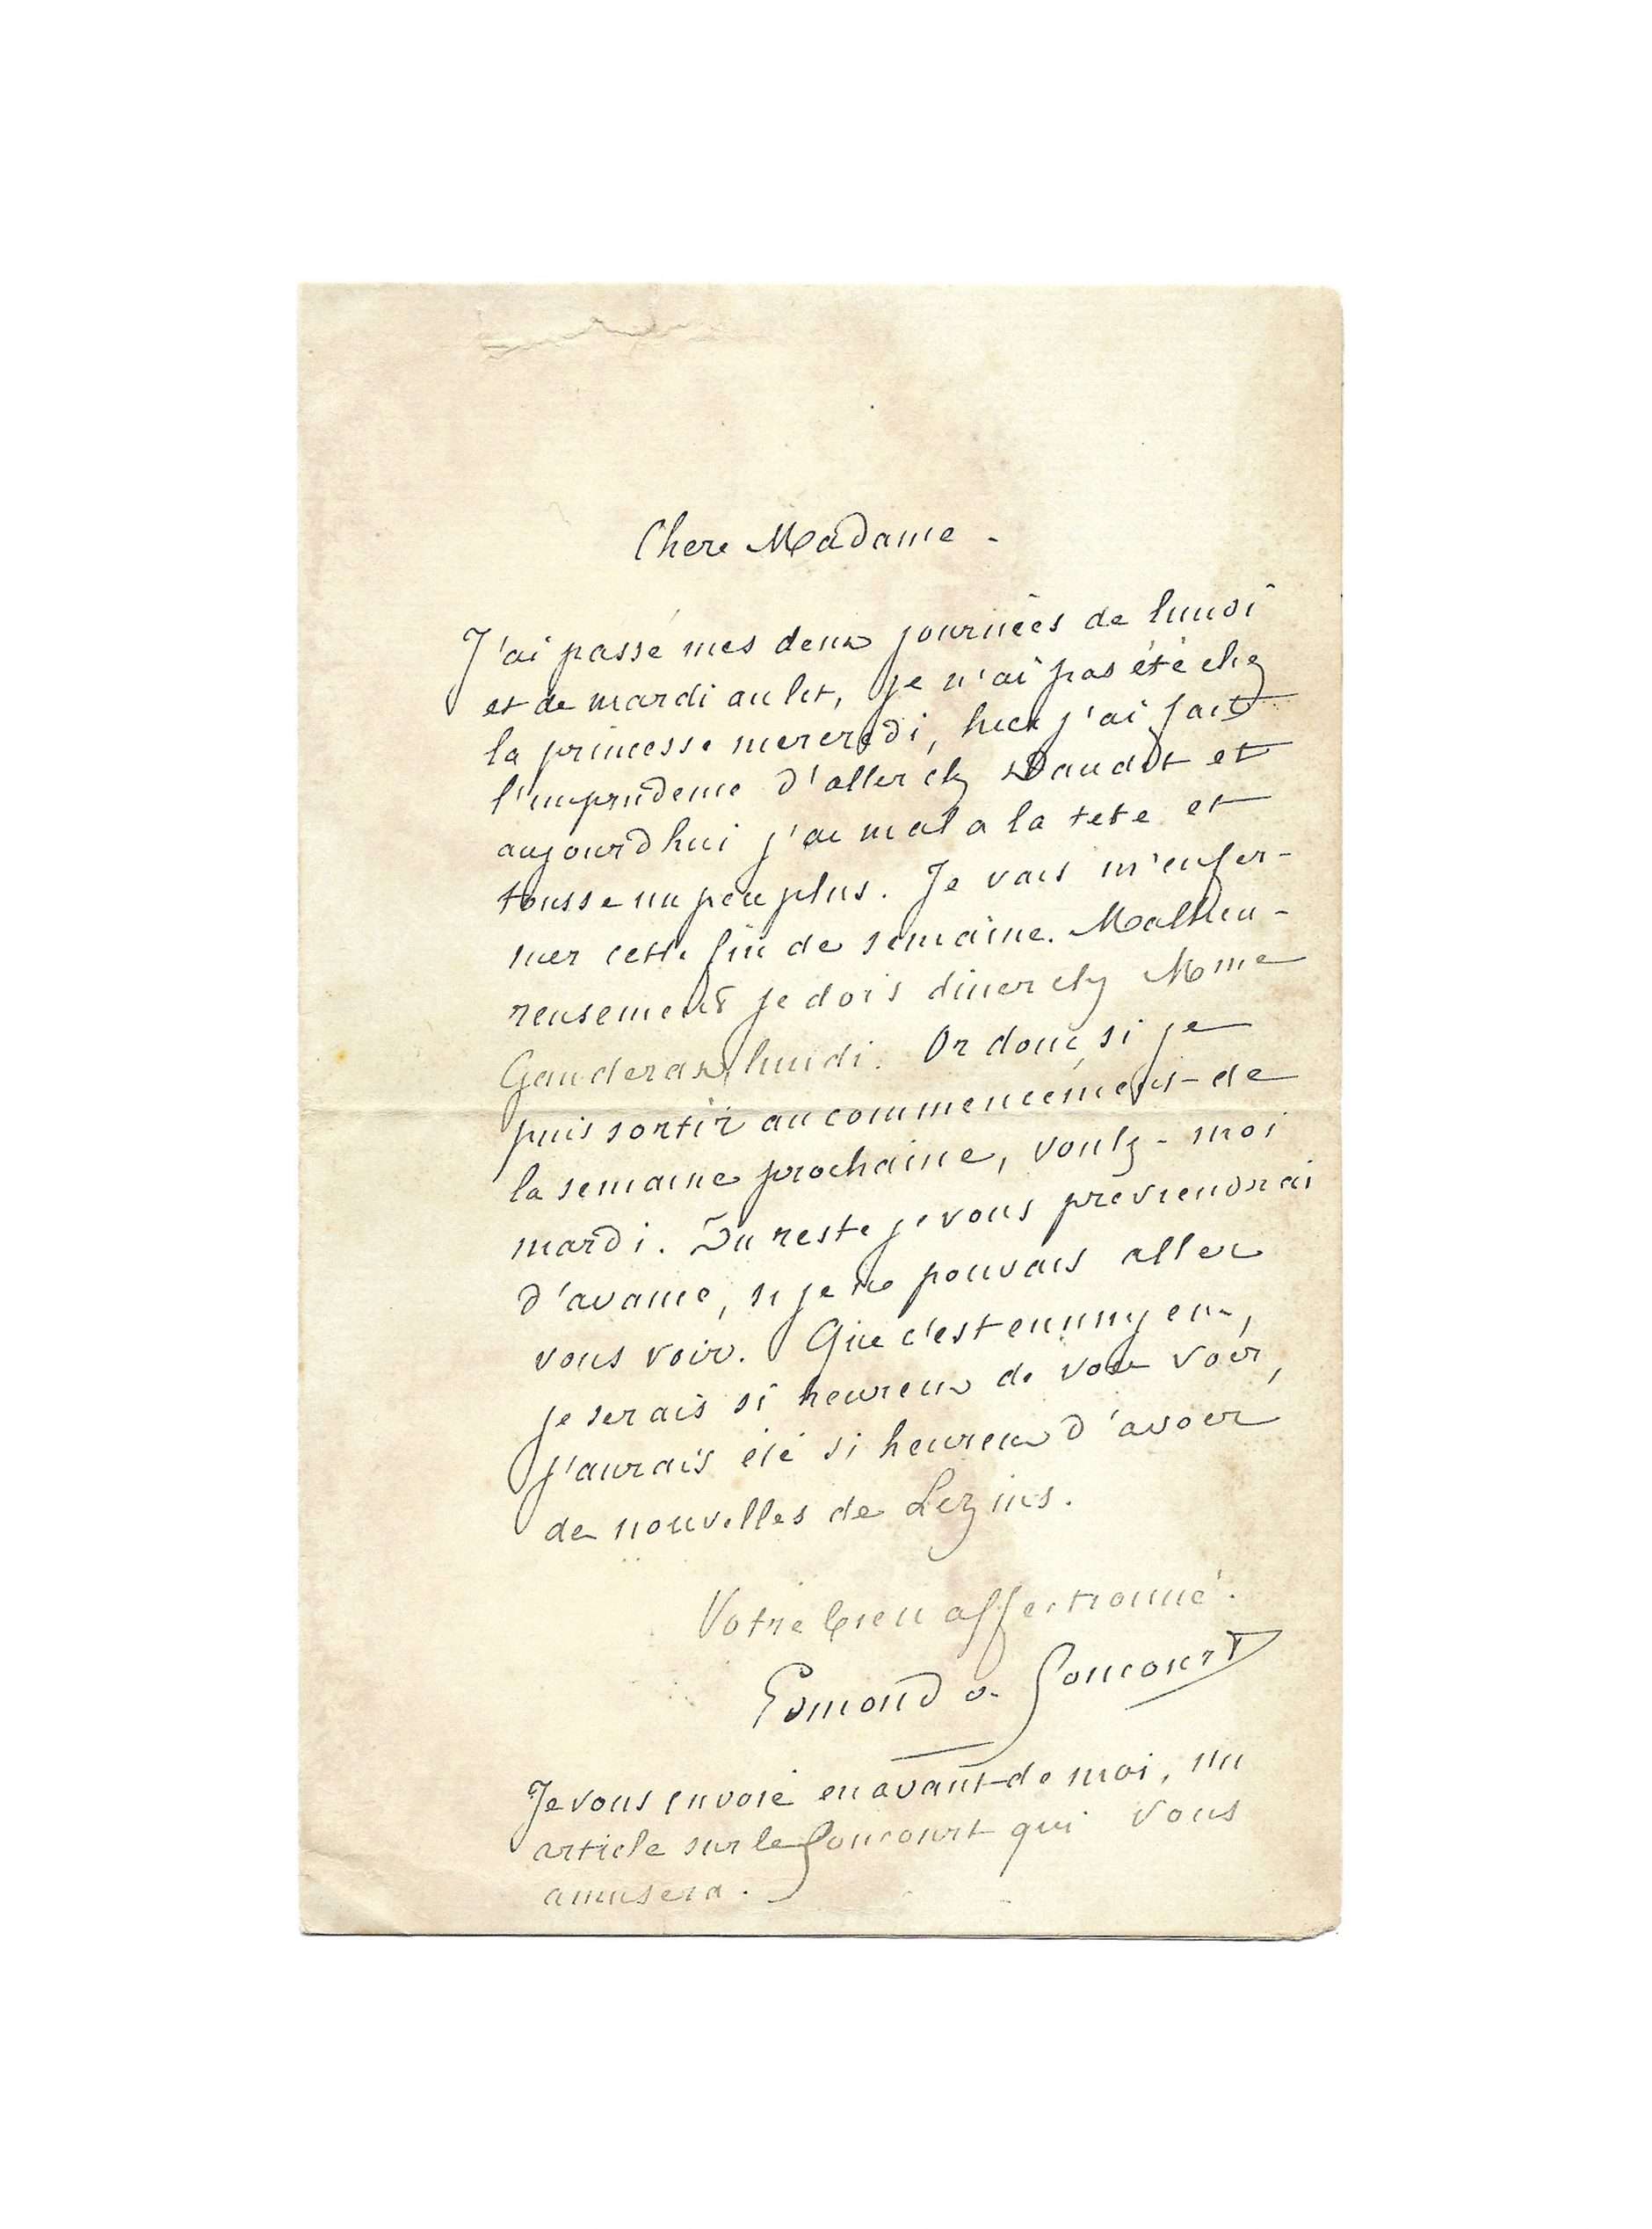 Chere Madame -
J'ai passé mes deux journées de lundi
et de mardi au lit, je n'ai pas été chez
la princesse mercredi, hier j'ai fait
l'imprudence d'aller chz Daudet et
aujourd'hui j'ai mal a la tete et
tousse un peu plus. Je vais m'enfer-
mer cette fin de semaine. Malheu-
reusement je dois diner chz Mme
Ganderax lundi. Or donc, si je
puis sortir au commencement de
la semaine prochaine, voulz-moi
mardi. Du reste je vous préviendrai
d'avance, si je ne pouvais aller
vous voir. Que c'est ennuyeux,
je serais si heureux de vous voir,
j'aurais été si heureux d'avoir
de nouvelles de Lezins.
Votre bien affectionné.
Edmond de Goncourt
Je vous envoie en avant de moi, un
article sur le Goncourt qui vous
amusera.